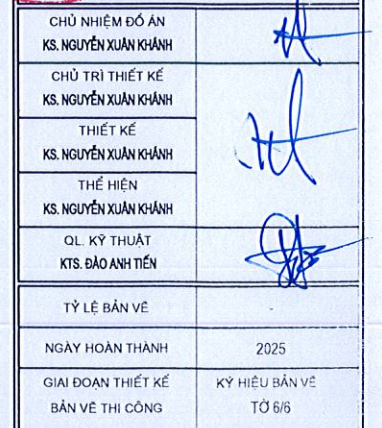 CHỦ NHIỆM ĐỒ ÁN
KS. NGUYỄN XUÂN KHÁNH
CHỦ TRÌ THIẾT KẾ
KS. NGUYỄN XUÂN KHÁNH
THIẾT KẾ
KS. NGUYỄN XUÂN KHÁNH
THỂ HIỆN
KS. NGUYỄN XUÂN KHÁNH
QL. KỸ THUẬT
KTS. ĐÀO ANH TIẾN
TỶ LỆ BẢN VẼ -
NGÀY HOÀN THÀNH 2025
GIAI ĐOẠN THIẾT KẾ KÝ HIỆU BẢN VẼ
BẢN VẼ THI CÔNG TỜ 6/6